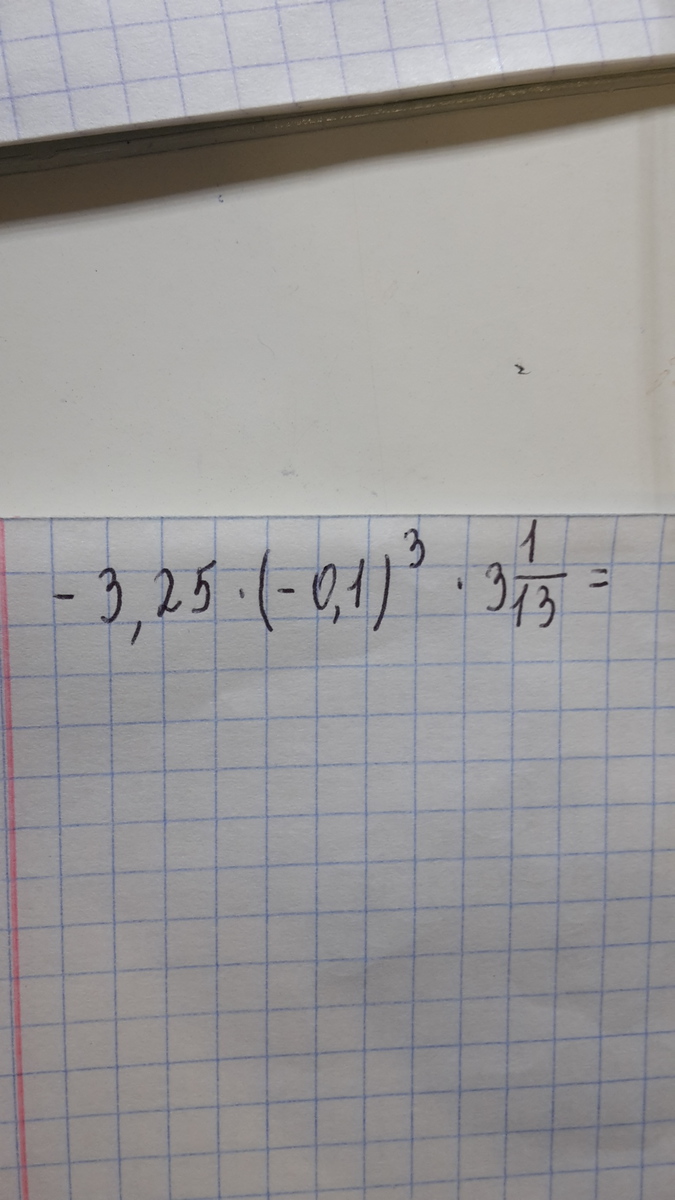 - 3,25 · (- 0,1)³ · 3 1/13 =